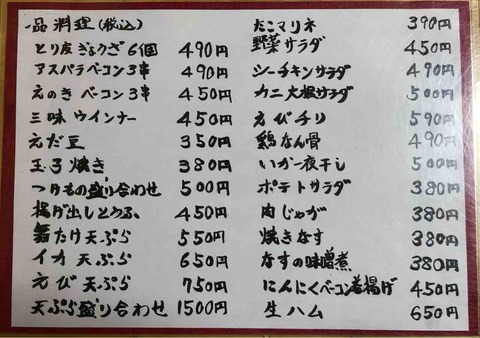 一品料理(税込)
とり皮ぎょうざ6個 490円
アスパラベーコン3串 490円
えのきベーコン3串 450円
三味ウインナー 450円
えだ豆 350円
玉子焼き 380円
つけもの盛り合わせ 500円
揚げ出しとうふ 450円
舞たけ天ぷら 550円
イカ天ぷら 650円
えび天ぷら 750円
天ぷら盛り合わせ 1500円
たこマリネ 390円
野菜サラダ 450円
シーチキンサラダ 490円
カニ大根サラダ 500円
えびチリ 590円
鶏なん骨 490円
いか一夜干し 500円
ポテトサラダ 380円
肉じゃが 380円
焼きなす 380円
なすの味噌煮 380円
にんにくベーコン巻揚げ 450円
生ハム 650円